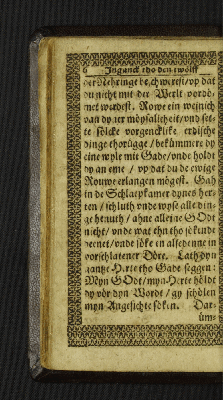 6 Ingenck tho den twölff
der Nehringe beschwerest/ vp dat
du nicht mit der Werlt vordö-
met werdest. Rowe ein weinich
van dyner möysalicheit/ vnd set-
te sölcke vorgencklike erdische
dinge thorügge/ bekümmere dy
eine wyle mit Gade/ vnde holdt
dy an eme / vp dat du de ewige
Rouwe erlangen mögest. Gah
in de Schlaepkamer dynes her-
ten / schluth vnde wyse alle din-
ge henuth / ahne alleine GOdt
nicht/ vnde wat thn tho sökende
deenet/ vnde söke en alsedenne in
vorschlatener Döre. Lath dyn
gantze Herte tho Gade seggen:
Myn GOdt/ myn Herte höldt
dy vör dyn Wordt/ gy schölen
myn Angesichte söken. Dar-
üm-